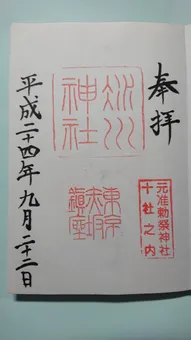 奉拝
氷川神社
元准勅祭神社
十社之内
東京
赤坂
鎮座
平成二十四年九月二十二日